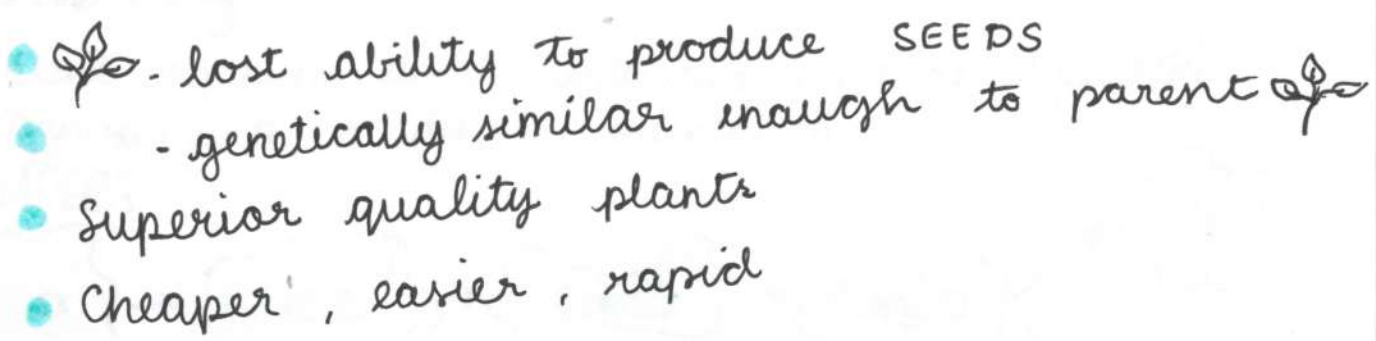 - lost ability to produce SEEDS
- genetically similar enough to parent
Superior quality plants
Cheaper, easier, rapid